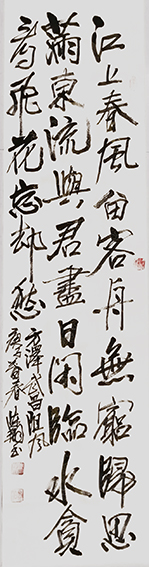 江上春风留客舟無窮歸思
滿東流與君盡日闲臨水貪
看飛花忘却愁
方澤武昌阻风
庚子暮春